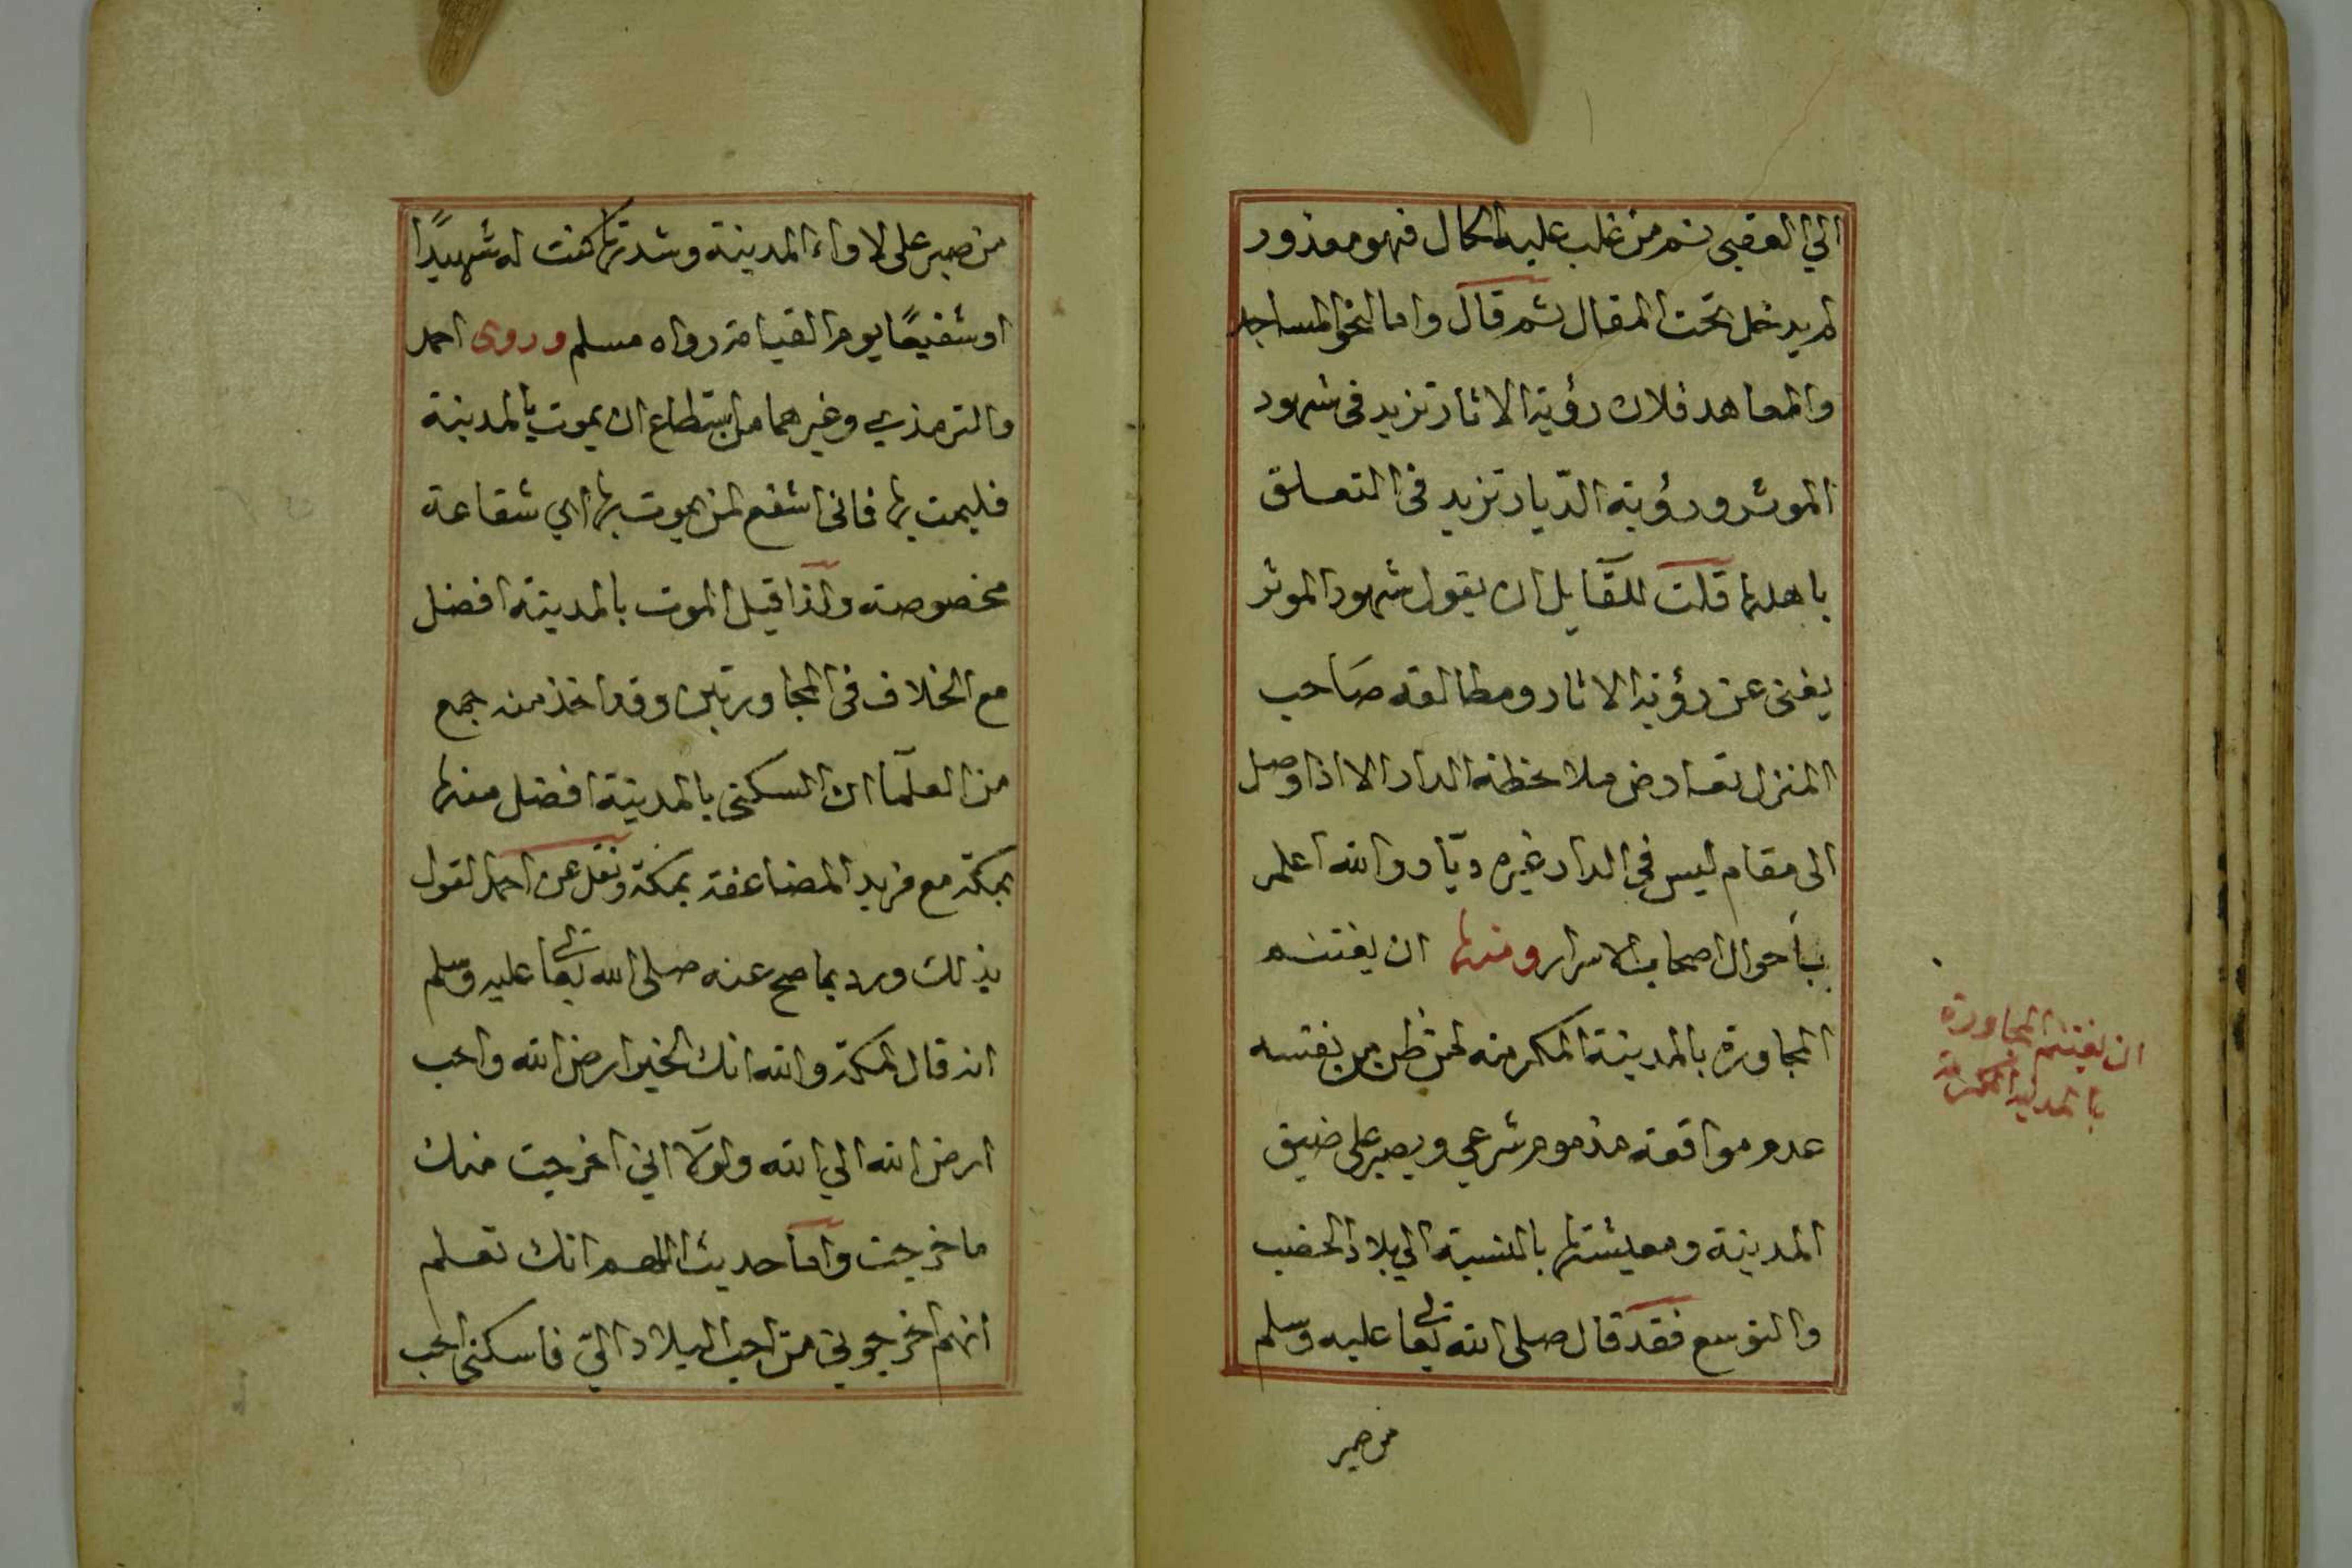 الي العقبى ثم من غلب عليه الحال فهو معذور
لم يدخل تحت المقال ثم قال واما النحو المساجد
والمعاهد فلان رؤية الاثار تزيد فى شهود
الموثر ورؤية الديار تزيد فى التعلق
باهلها قلت للقايل ان يقول شهود الموثر
يغنى عن رؤية الاثار ومطالعة صاحب
المنزل تعارض ملاحظة الدار الا اذا وصل
الى مقام ليس في الدار غيره ديار والله اعلم
بأحوال اصحاب الاسرار ومنها ان يغتنم
المجاورة بالمدينة المكرمة لمن ظن من نفسه
عدم مواقعة مذموم شرعي ويصبر على ضيق
المدينة ومعيشتها بالنسبة الي بلاد الخصب
والتوسع فقد قال صلى الله تعالى عليه وسلم
من صبر
ان يغتنم المجاورة
بالمدينة المكرمة
من صبر على لاواء المدينة وشدتها كنت له شهيدًا
او شفيعًا يوم القيامة رواه مسلم وروى احمد
والترمذي وغيرهما من استطاع ان يموت بالمدينة
فليمت بها فانى اشفع لمن يموت بها اي شفاعة
مخصوصة ولذا قيل الموت بالمدينة افضل
مع الخلاف فى المجاورتين وقد اخذ منه جمع
من العلمآ ان السكنى بالمدينة افضل منها
بمكة مع مزيد المضاعفة بمكة ونقل عن احمد القول
بذلك ورد بما صح عنه صلى الله تعالى عليه وسلم
انه قال لمكة والله انك لخير ارض الله واحب
ارض الله الي الله ولولا اني اخرجت منك
ما خرجت واما حديث اللهم انك تعلم
انهم اخرجوني من احب البلاد الي فاسكنى احب